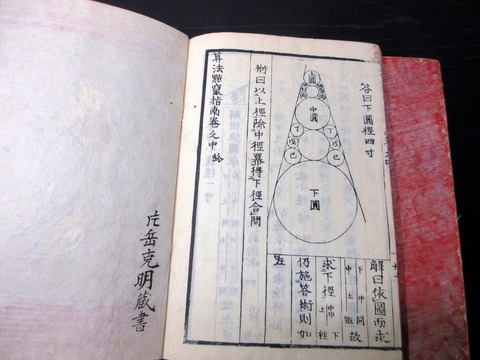 答曰下圓徑四寸
上圓
中圓
丁
丁
戊
戊
己
己
下圓
術曰以上徑除中徑冪得下徑合問
算法點竄指南卷之中 終
解曰依圖而求
下 中 同 故
中 上 矩
求下徑
中巾 下
上 徑
仍施答術則如
左
片岳克明蔵書